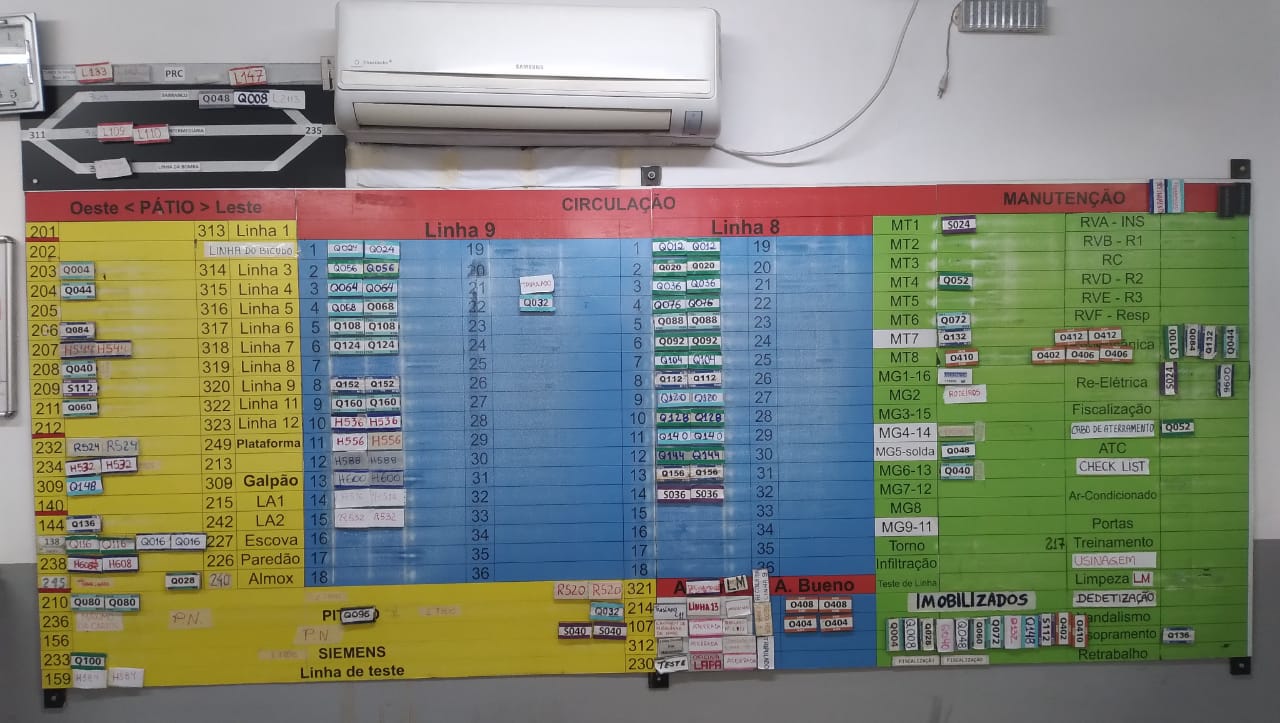 L133 PRC L147
BARRANCO Q048 Q008 L2113
311 L109 L110 INTERMEDIÁRIA 235
LINHA DA BOMBA
SAMSUNG
Oeste < PÁTIO > Leste
201 313 Linha 1
202 LINHA DO BICUDO
203 Q004 314 Linha 3
204 Q044 315 Linha 4
205 316 Linha 5
206 Q084 317 Linha 6
207 H544 H544 318 Linha 7
208 Q040 319 Linha 8
209 S112 320 Linha 9
211 Q060 322 Linha 11
212 323 Linha 12
232 R524 R524 249 Plataforma
234 H532 H532 213
309 Q148 309 Galpão
140 215 LA1
144 Q136 242 LA2
138 Q116 Q116 Q016 Q016 227 Escova
238 H608 H608 226 Paredão
245 Q028 240 Almox
210 Q080 Q080 R520 R520 321
P.N. Q096 Q032 214
236 S040 S040 107
156 P.N SIEMENS 312
233 Q100 Linha de teste 230
159 H584 H584
CIRCULAÇÃO
Linha 9
1 Q024 Q024 19
2 Q056 Q056 20
3 Q064 Q064 21
4 Q068 Q068 22 Q032
5 Q108 Q108 23
6 Q124 Q124 24
7 25
8 Q152 Q152 26
9 Q160 Q160 27
10 H536 H536 28
11 H556 H556 29
12 H588 H588 30
13 H600 H600 31
14 32
15 R532 R532 33
16 34
17 35
18 36
Linha 8
1 Q012 Q012 19
2 Q020 Q020 20
3 Q036 Q036 21
4 Q076 Q076 22
5 Q088 Q088 23
6 Q092 Q092 24
7 Q104 Q104 25
8 Q112 Q112 26
9 Q120 Q120 27
10 Q128 Q128 28
11 Q140 Q140 29
12 Q144 Q144 30
13 Q156 Q156 31
14 S036 S036 32
15 33
16 34
17 35
18 36
LM A. Bueno
LINHA 13 O408 O408
O404 O404
TESTE LAPA
MANUTENÇÃO
MT1 S024 RVA - INS
MT2 RVB - R1
MT3 RC
MT4 Q052 RVD - R2
MT5 RVE - R3
MT6 Q072 RVF - Resp
MT7 Q132 O412 O412 Q100 Q084 Q132 Q044
MT8 O410 O402 O406 O406
MG1-16 Re-Elétrica S024 Q096
MG2 RODEIROS
MG3-15 Fiscalização
MG4-14 CABO DE ATERRAMENTO Q052
MG5-solda Q048 ATC
MG6-13 Q040 CHECK LIST
MG7-12 Ar-Condicionado
MG8
MG9-11 Portas
Torno 217 Treinamento
Infiltração USINAGEM
Teste de Linha Limpeza LM
IMOBILIZADOS DEDETIZAÇÃO
Q004 Q008 Q048 Q060 Q072 S112 O402 O410 Q136
Retrabalho
FISCALIZAÇÃO FISCALIZAÇÃO